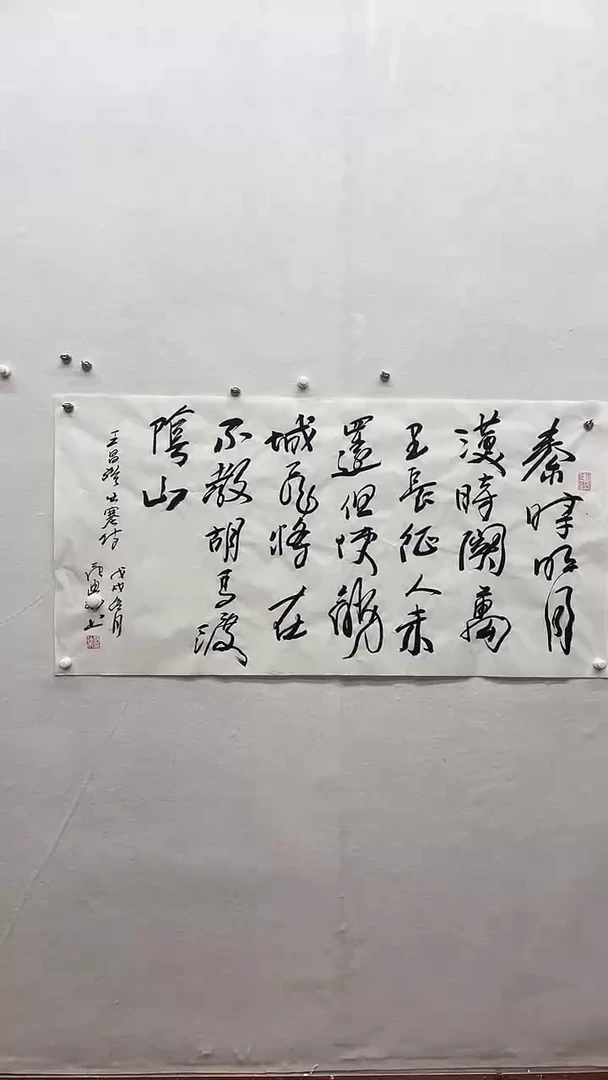 秦時明月
漢時關萬
里長征人未
還但使龍
城飛將在
不教胡馬渡
陰山
王昌齡出塞詩
戊戌冬月
書